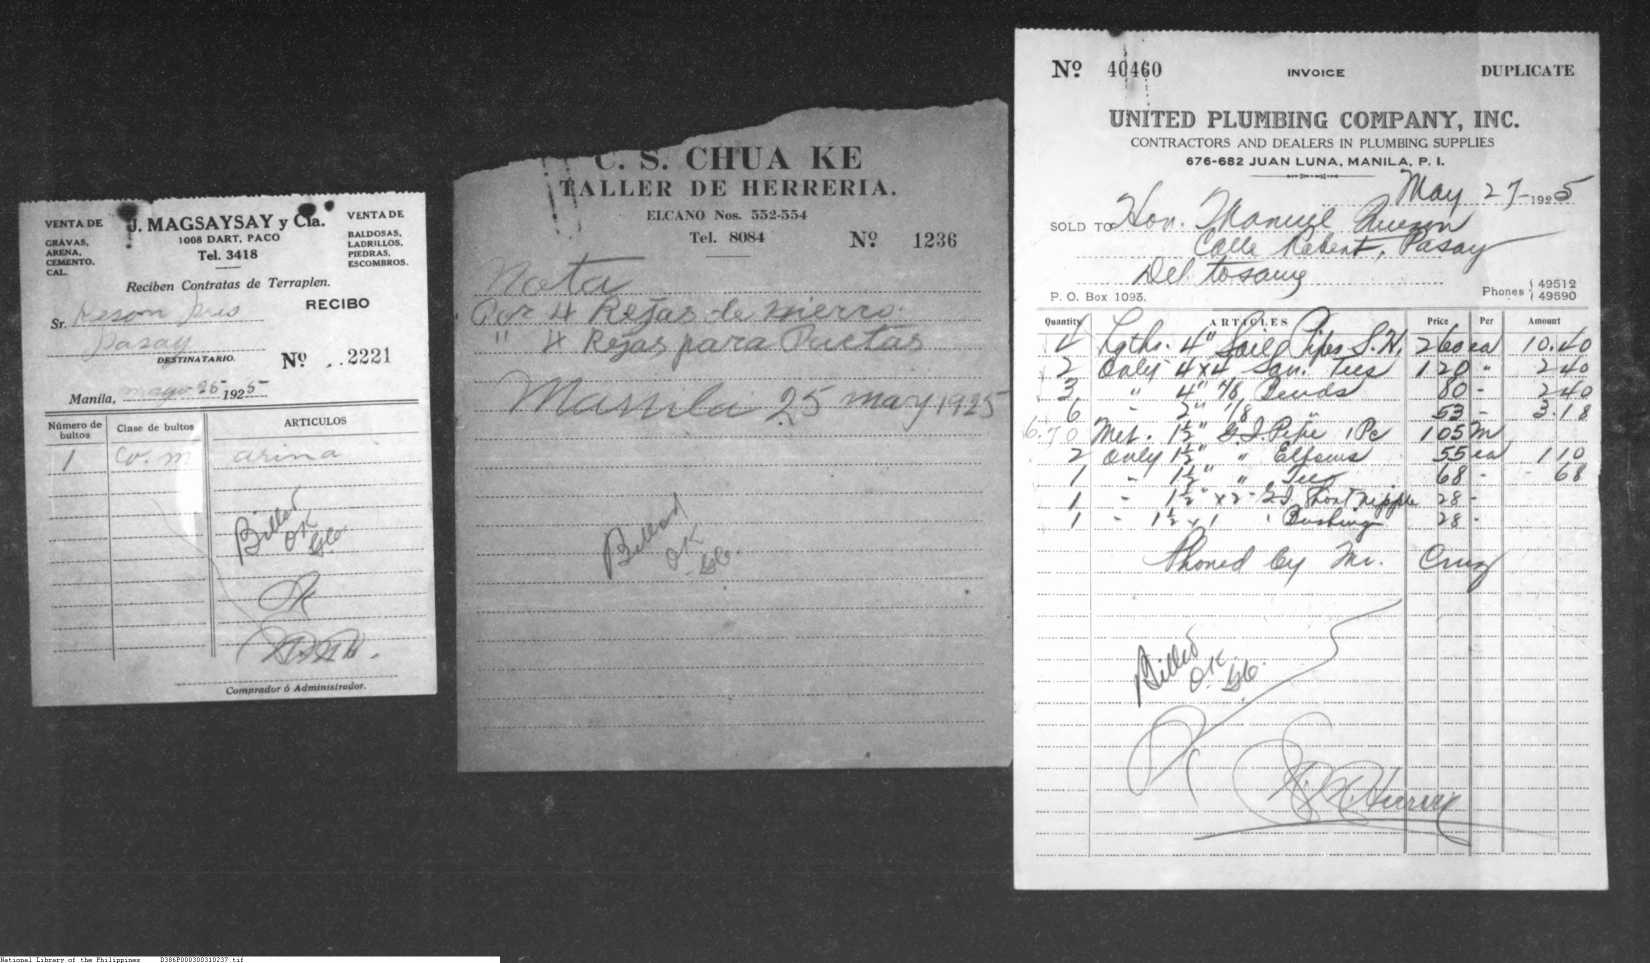 VENTA DE
GRAVAS,
ARENA,
CEMENTO,
CAL.
J. MAGSAYSAY y Cia.
1008 DART, PACO
Tel. 3418
VENTA DE
BALDOSAS,
LADRILLOS,
PIEDRAS,
ESCOMBROS.
Reciben Contratas de Terraplen.
RECIBO
Sr.
Pasay
DESTINATARIO.
Nº . . 2221
Manila, mayo 25 1925
Número de bultos
Clase de bultos
ARTICULOS
1 cv. m arina
Billed
OK
Comprador ó Administrador.
C. S. CHUA KE
TALLER DE HERRERIA.
ELCANO Nos. 552-554
Tel. 8084
Nº 1236
Nota
Por 4 Rejas de hierro
" 4 Rejas para Puetas
Manila 25 may 1925
Billed
OK
Nº 40460
INVOICE
DUPLICATE
UNITED PLUMBING COMPANY, INC.
CONTRACTORS AND DEALERS IN PLUMBING SUPPLIES
676-682 JUAN LUNA, MANILA, P. I.
May 27-1925
SOLD TO Hon. Manuel Quezon
Calle Rebert, Pasay
Del
P. O. Box 1093.
Phones 49512
49590
Quantity ARTICLES Price Per Amount
4 Lgths. 4" Soil Pipes S.H. 260 ea 10.40
2 Only 4x4 San. Tees 120 " 2 40
3 " 4" 1/8 Bends 80 - 2 40
6 - 2" 1/8 " 53 - 3.18
6.70 Met. 1½" G.I. Pipe 1 Pc 105 M
2 Only 1½" " Elbows 55 ea 1 10
1 - 1½" " Tees 68 - 68
1 - 1½" x 2" G.I. Short nipple 28 -
1 - 1½ x 1 " Bushing 28 -
Phoned by Mr. Cruz
Billed
O.K.
National Library of the Philippines D386P000300310237.tif